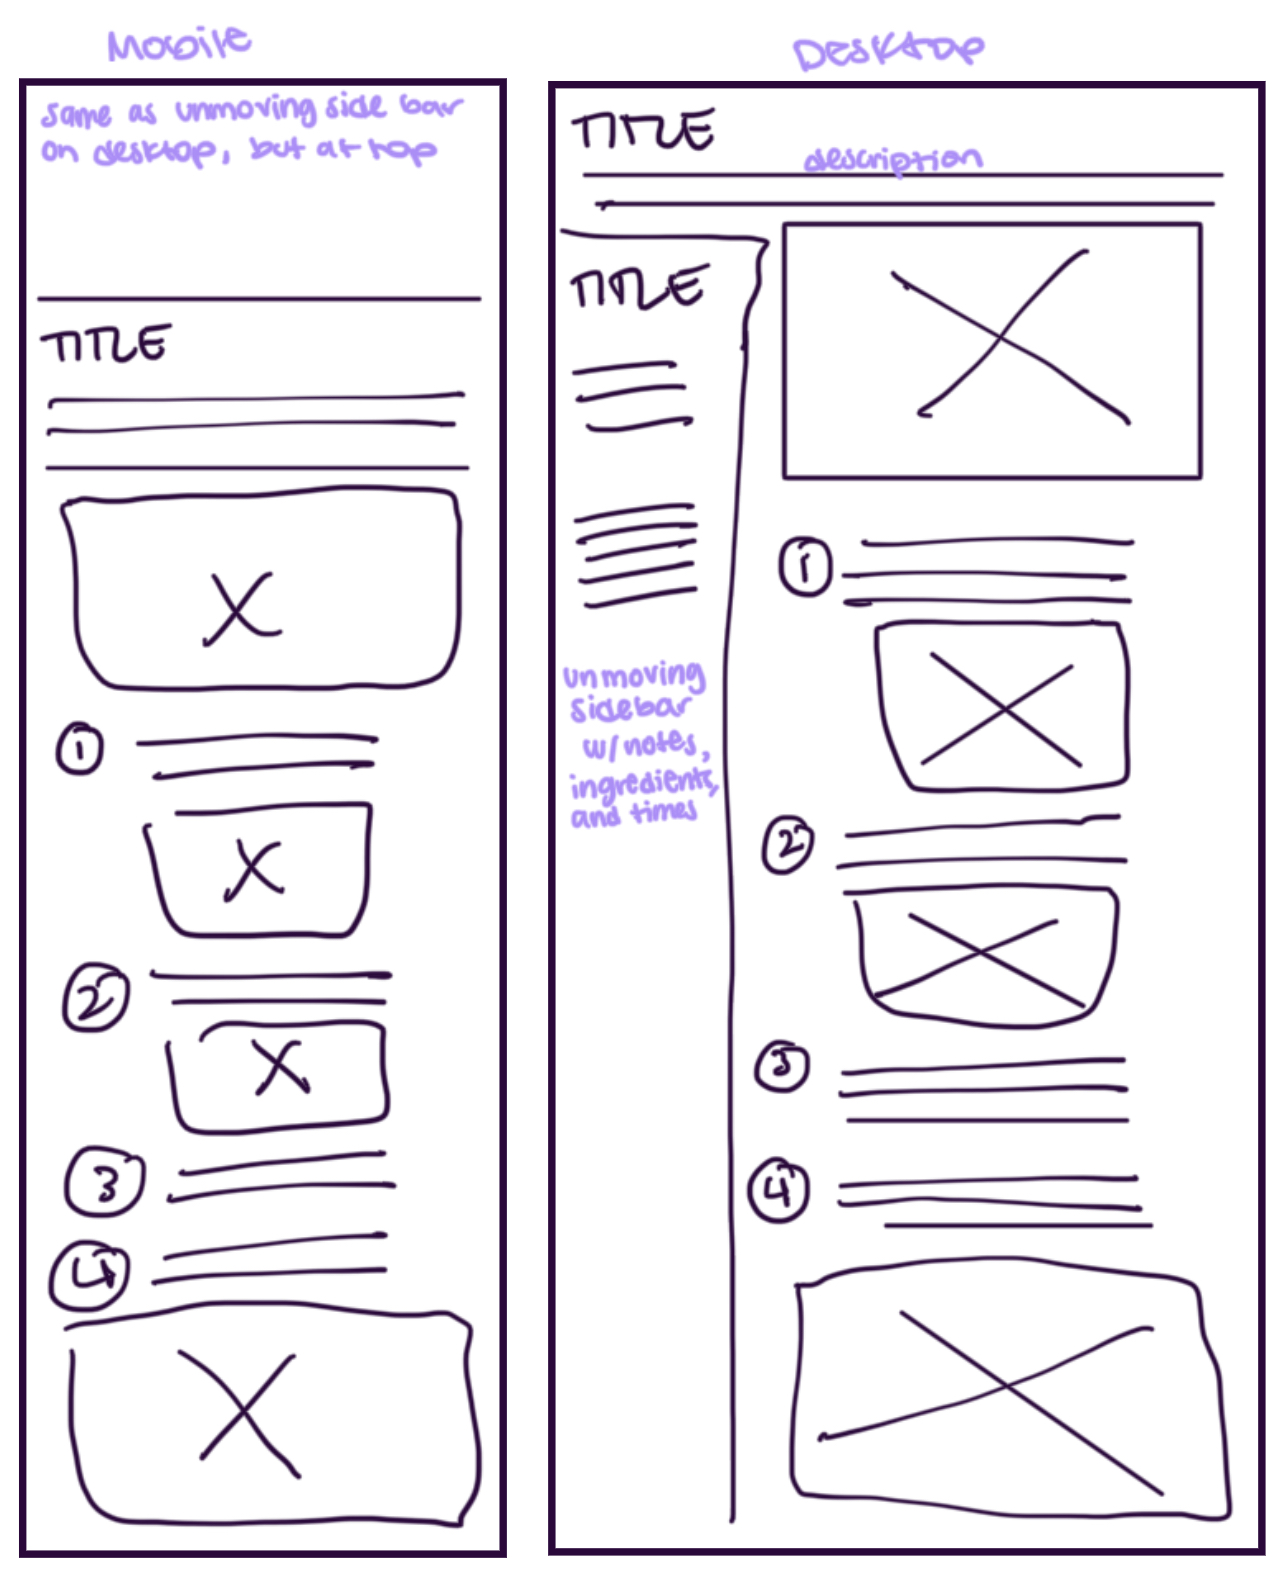 Mobile
same as unmoving side bar
on desktop, but at top
TITLE
1
2
3
4
Desktop
TITLE
description
TITLE
unmoving
sidebar
w/ notes,
ingredients,
and times
1
2
3
4